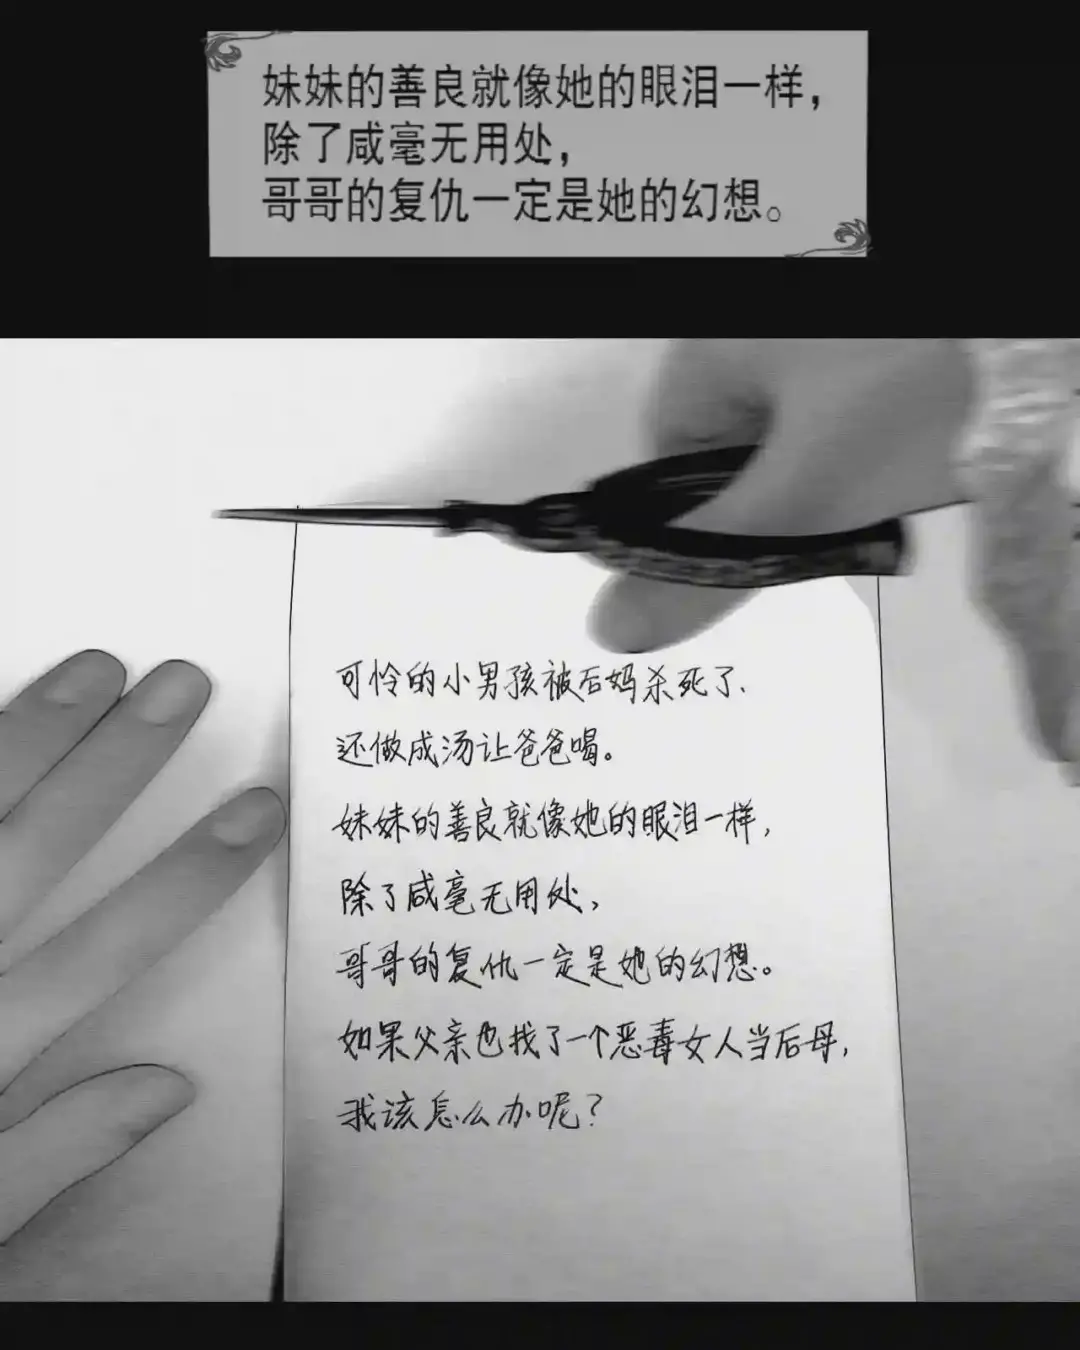 妹妹的善良就像她的眼泪一样，
除了咸毫无用处，
哥哥的复仇一定是她的幻想。
可怜的小男孩被后妈杀死了、
还做成汤让爸爸喝。
妹妹的善良就像她的眼泪一样，
除了咸毫无用处，
哥哥的复仇一定是她的幻想。
如果父亲也找了一个恶毒女人当后母，
我该怎么办呢？